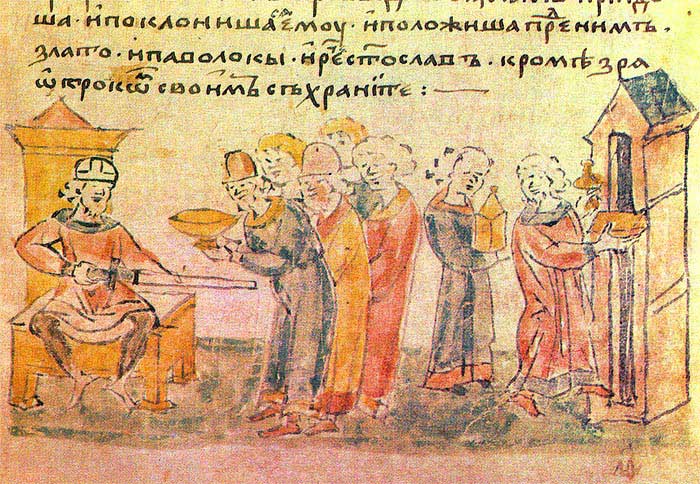 ша · ипоклонишасѧ емоу · иположиша прⷣенимъ ·
злато · ипаволокы · ирⷱестославъ · кромѣ зря
ѡтрокѡⷨ своимъ съхраніте : —